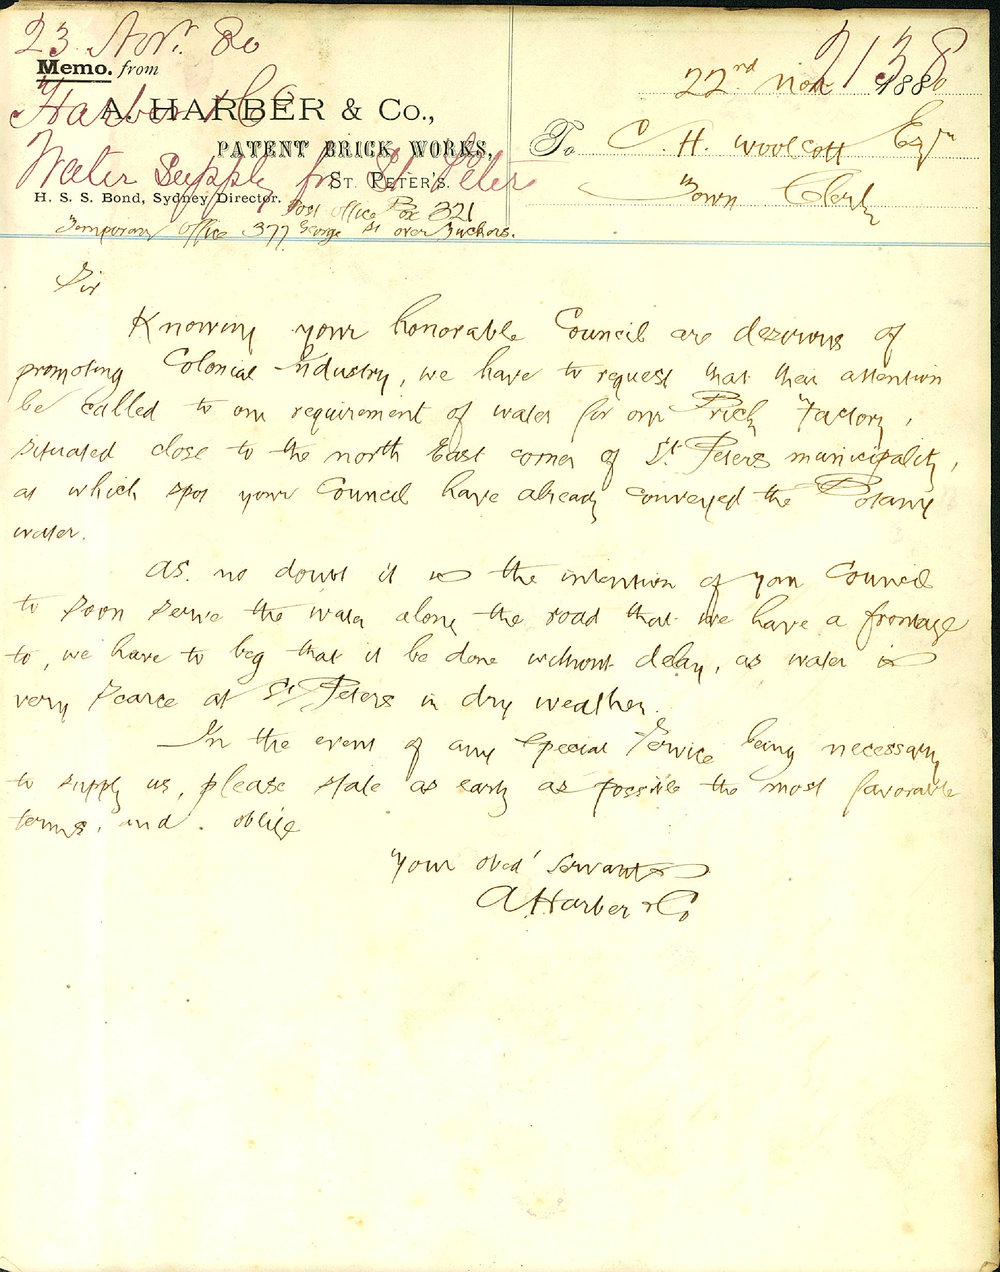 23 Nov. 80
2138
Memo. from
Harber & Co
A. HARBER & Co.,
PATENT BRICK WORKS,
Water Supply for St Peters
ST. PETER'S.
H. S. S. Bond, Sydney Director.
Post Office Box 321
Temporary Office 377 George St over Tuckers.
22nd Nov 1880
To C. H. Woolcott Esqr
Town Clerk
Sir
Knowing your honorable Council are dezirous of
promoting Colonial Industry, we have to request that their attention
be called to our requirement of water for our Brick Factory,
situated close to the north East corner of St. Peters municipality,
at which spot your Council have already conveyed the Botany
water.
As no doubt it is the intention of your Council
to soon serve the water along the road that we have a frontage
to, we have to beg that it be done without delay, as water is
very scarce at St. Peters in dry weather.
In the event of any special service being necessary
to supply us, please state as early as possible the most favorable
terms, and oblige
Your obed' servants
A Harber & Co